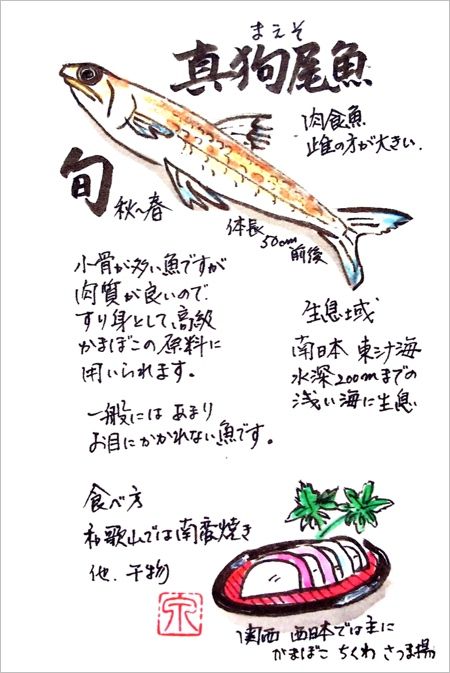 まえそ
真狗尾魚
肉食魚
雌の方が大きい.
旬
秋～春
体長
50cm
前後
小骨が多い魚ですが
肉質が良いので
すり身として高級
かまぼこの原料に
用いられます。
一般には あまり
お目にかかれない魚です。
生息域
南日本 東シナ海
水深200mまでの
浅い海に生息
食べ方
和歌山では南蛮焼き
他、干物
関西 西日本では主に
かまぼこ ちくわ さつま揚